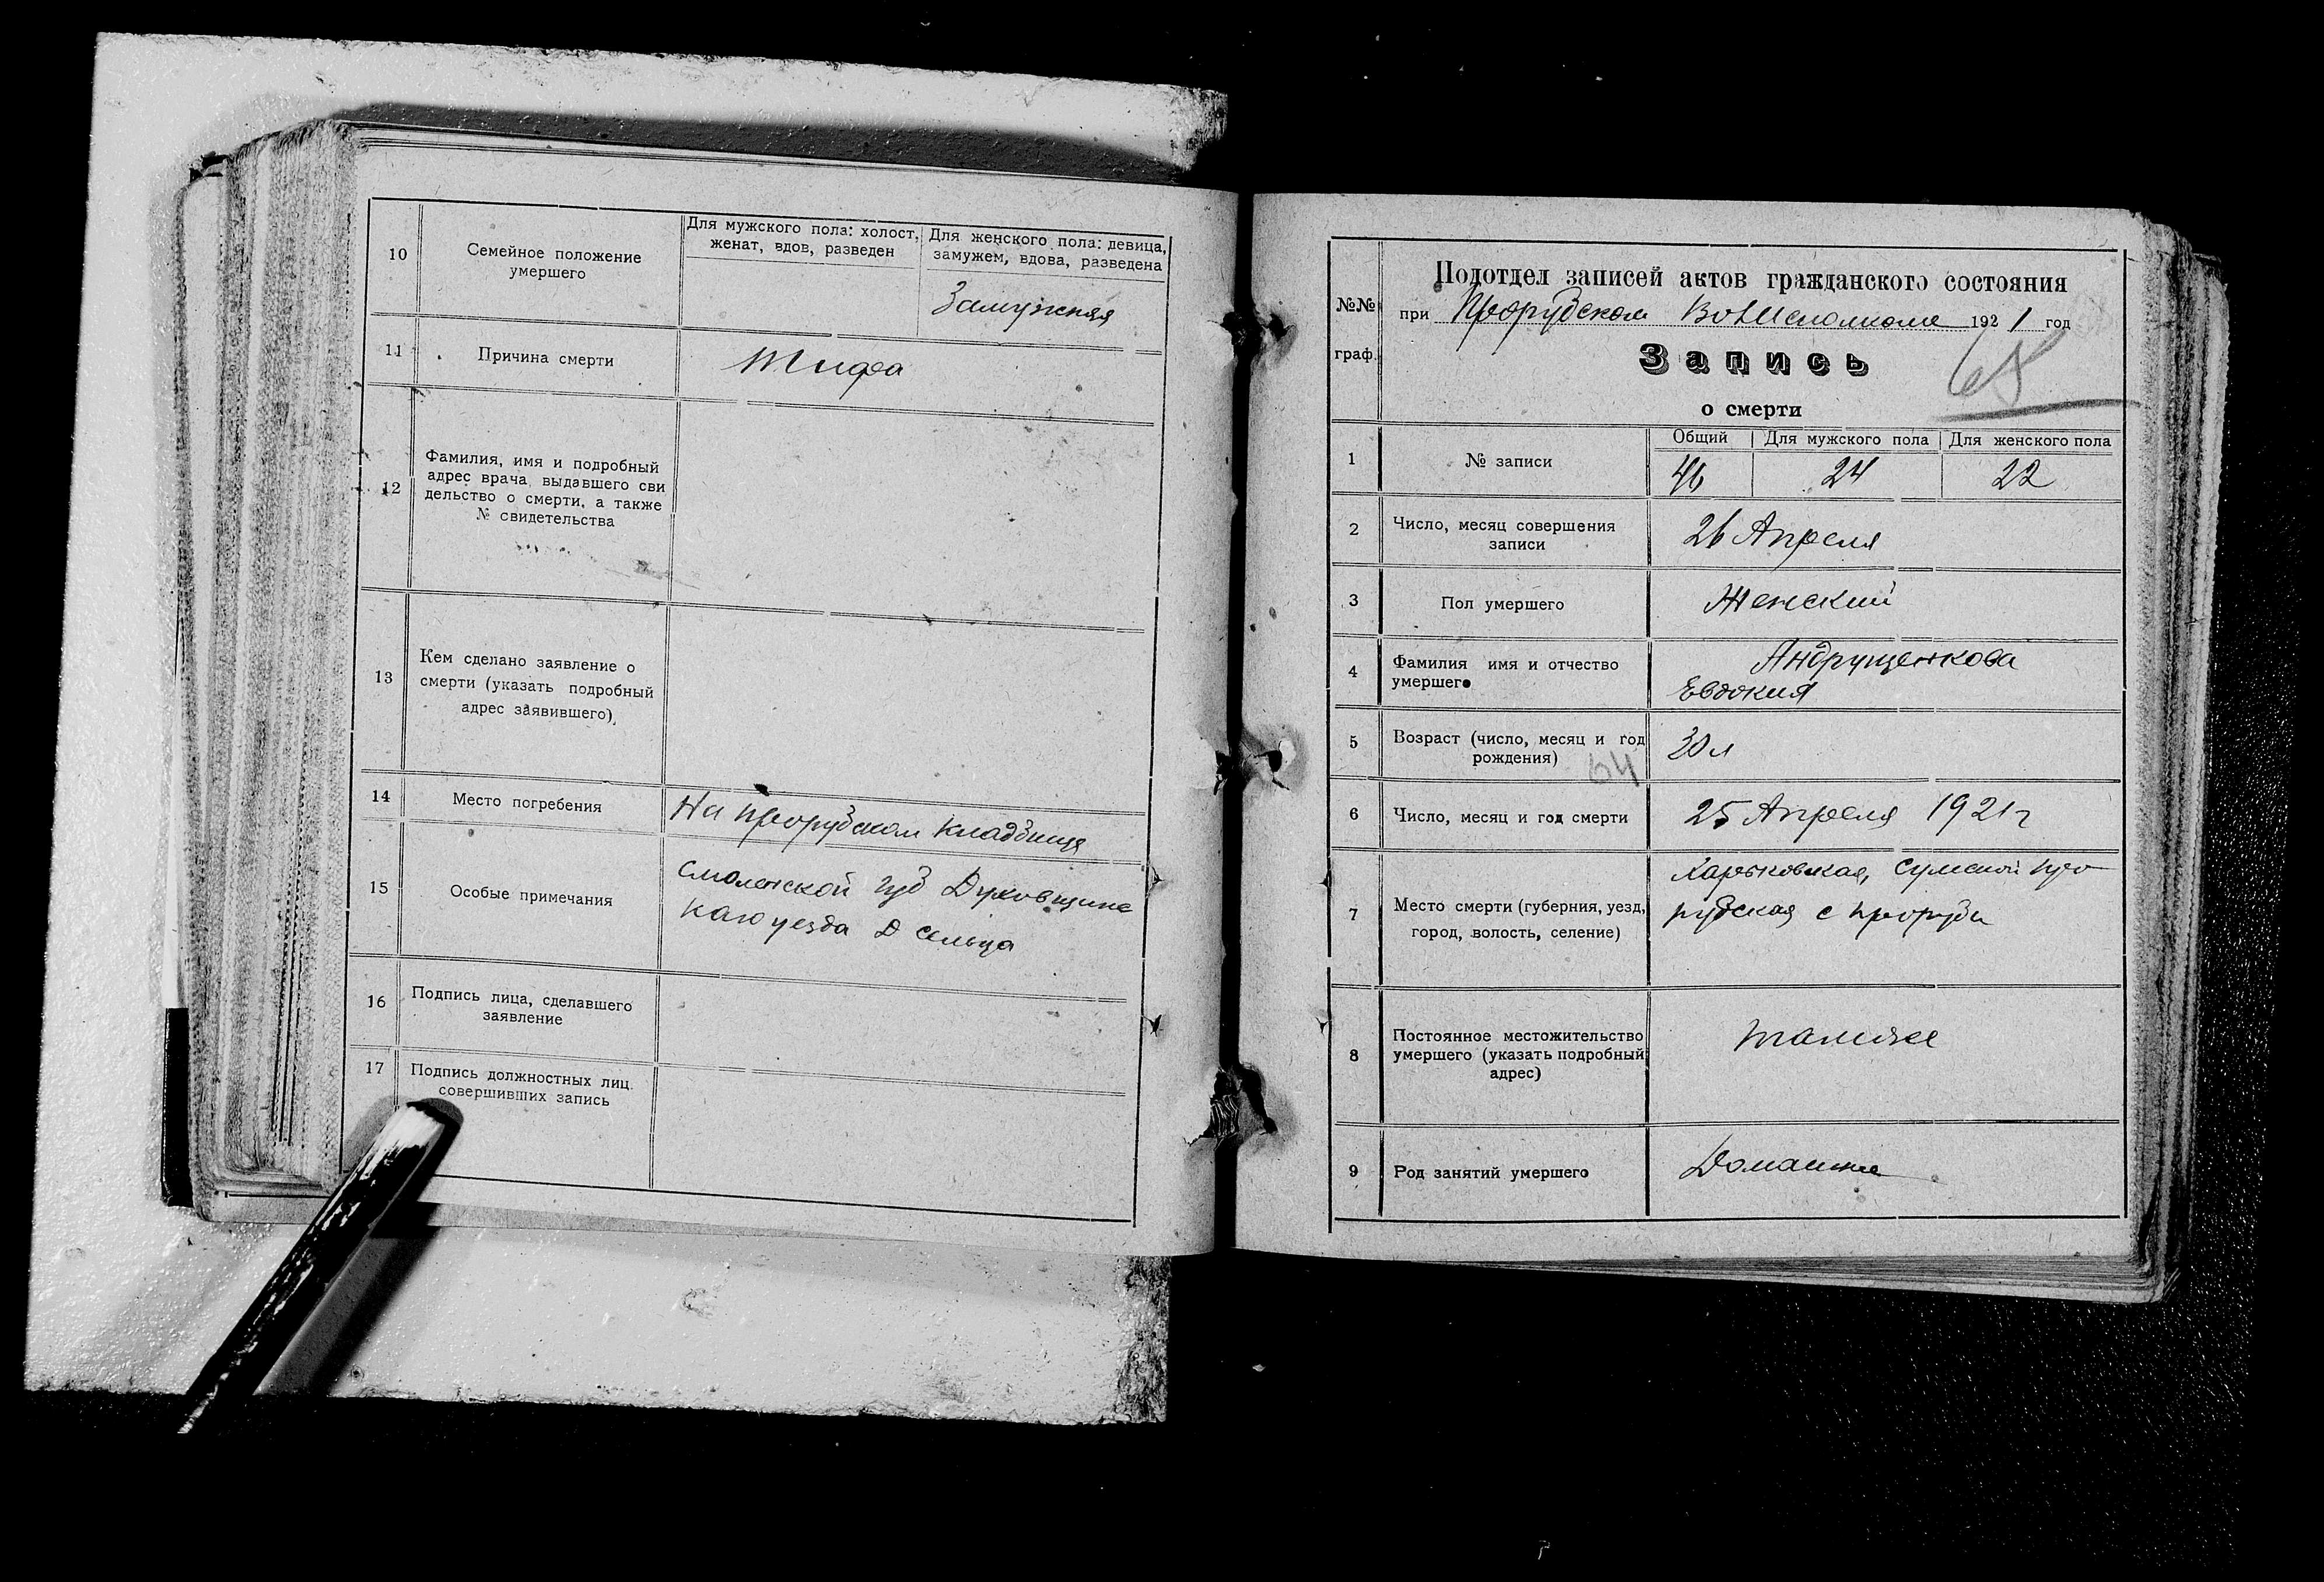 10
Семейное положение
умершего
Для мужского пола: холост,
женат, вдов, разведен
Для женского пола: девица,
замужем, вдова, разведена
Замужняя
11
Причина смерти
Тифа
12
Фамилия, имя и подробный
адрес врача выдавшего сви
дельство о смерти, а также
№ свидетельства
13
Кем сделано заявление о
смерти (указать подробный
адрес заявившего)
14
Место погребения
На прорубском кладбище
15
Особые примечания
Смоленской губ Духовщинс
каго уезда Д Сельца
16
Подпись лица, сделавшего
заявление
17
Подпись должностных лиц
совершивших запись
№№
граф.
Подотдел записей актов гражданского состояния
при Прорубском Волисполкоме 1921 год
Запись
68
о смерти
1
№ записи
Общий
Для мужского пола
Для женского пола
46
24
22
2
Число, месяц совершения
записи
26 Апреля
3
Пол умершего
Женский
4
Фамилия имя и отчество
умершего
Андрущенкова
Евдокия
5
Возраст (число, месяц и год
рождения)
64
30 л
6
Число, месяц и год смерти
25 Апреля 1921 г
7
Место смерти (губерния, уезд,
город, волость, селение)
Харьковская, Сумской про
рубская с проруби
8
Постоянное местожительство
умершего (указать подробный
адрес)
тамже
9
Род занятий умершего
Домашние